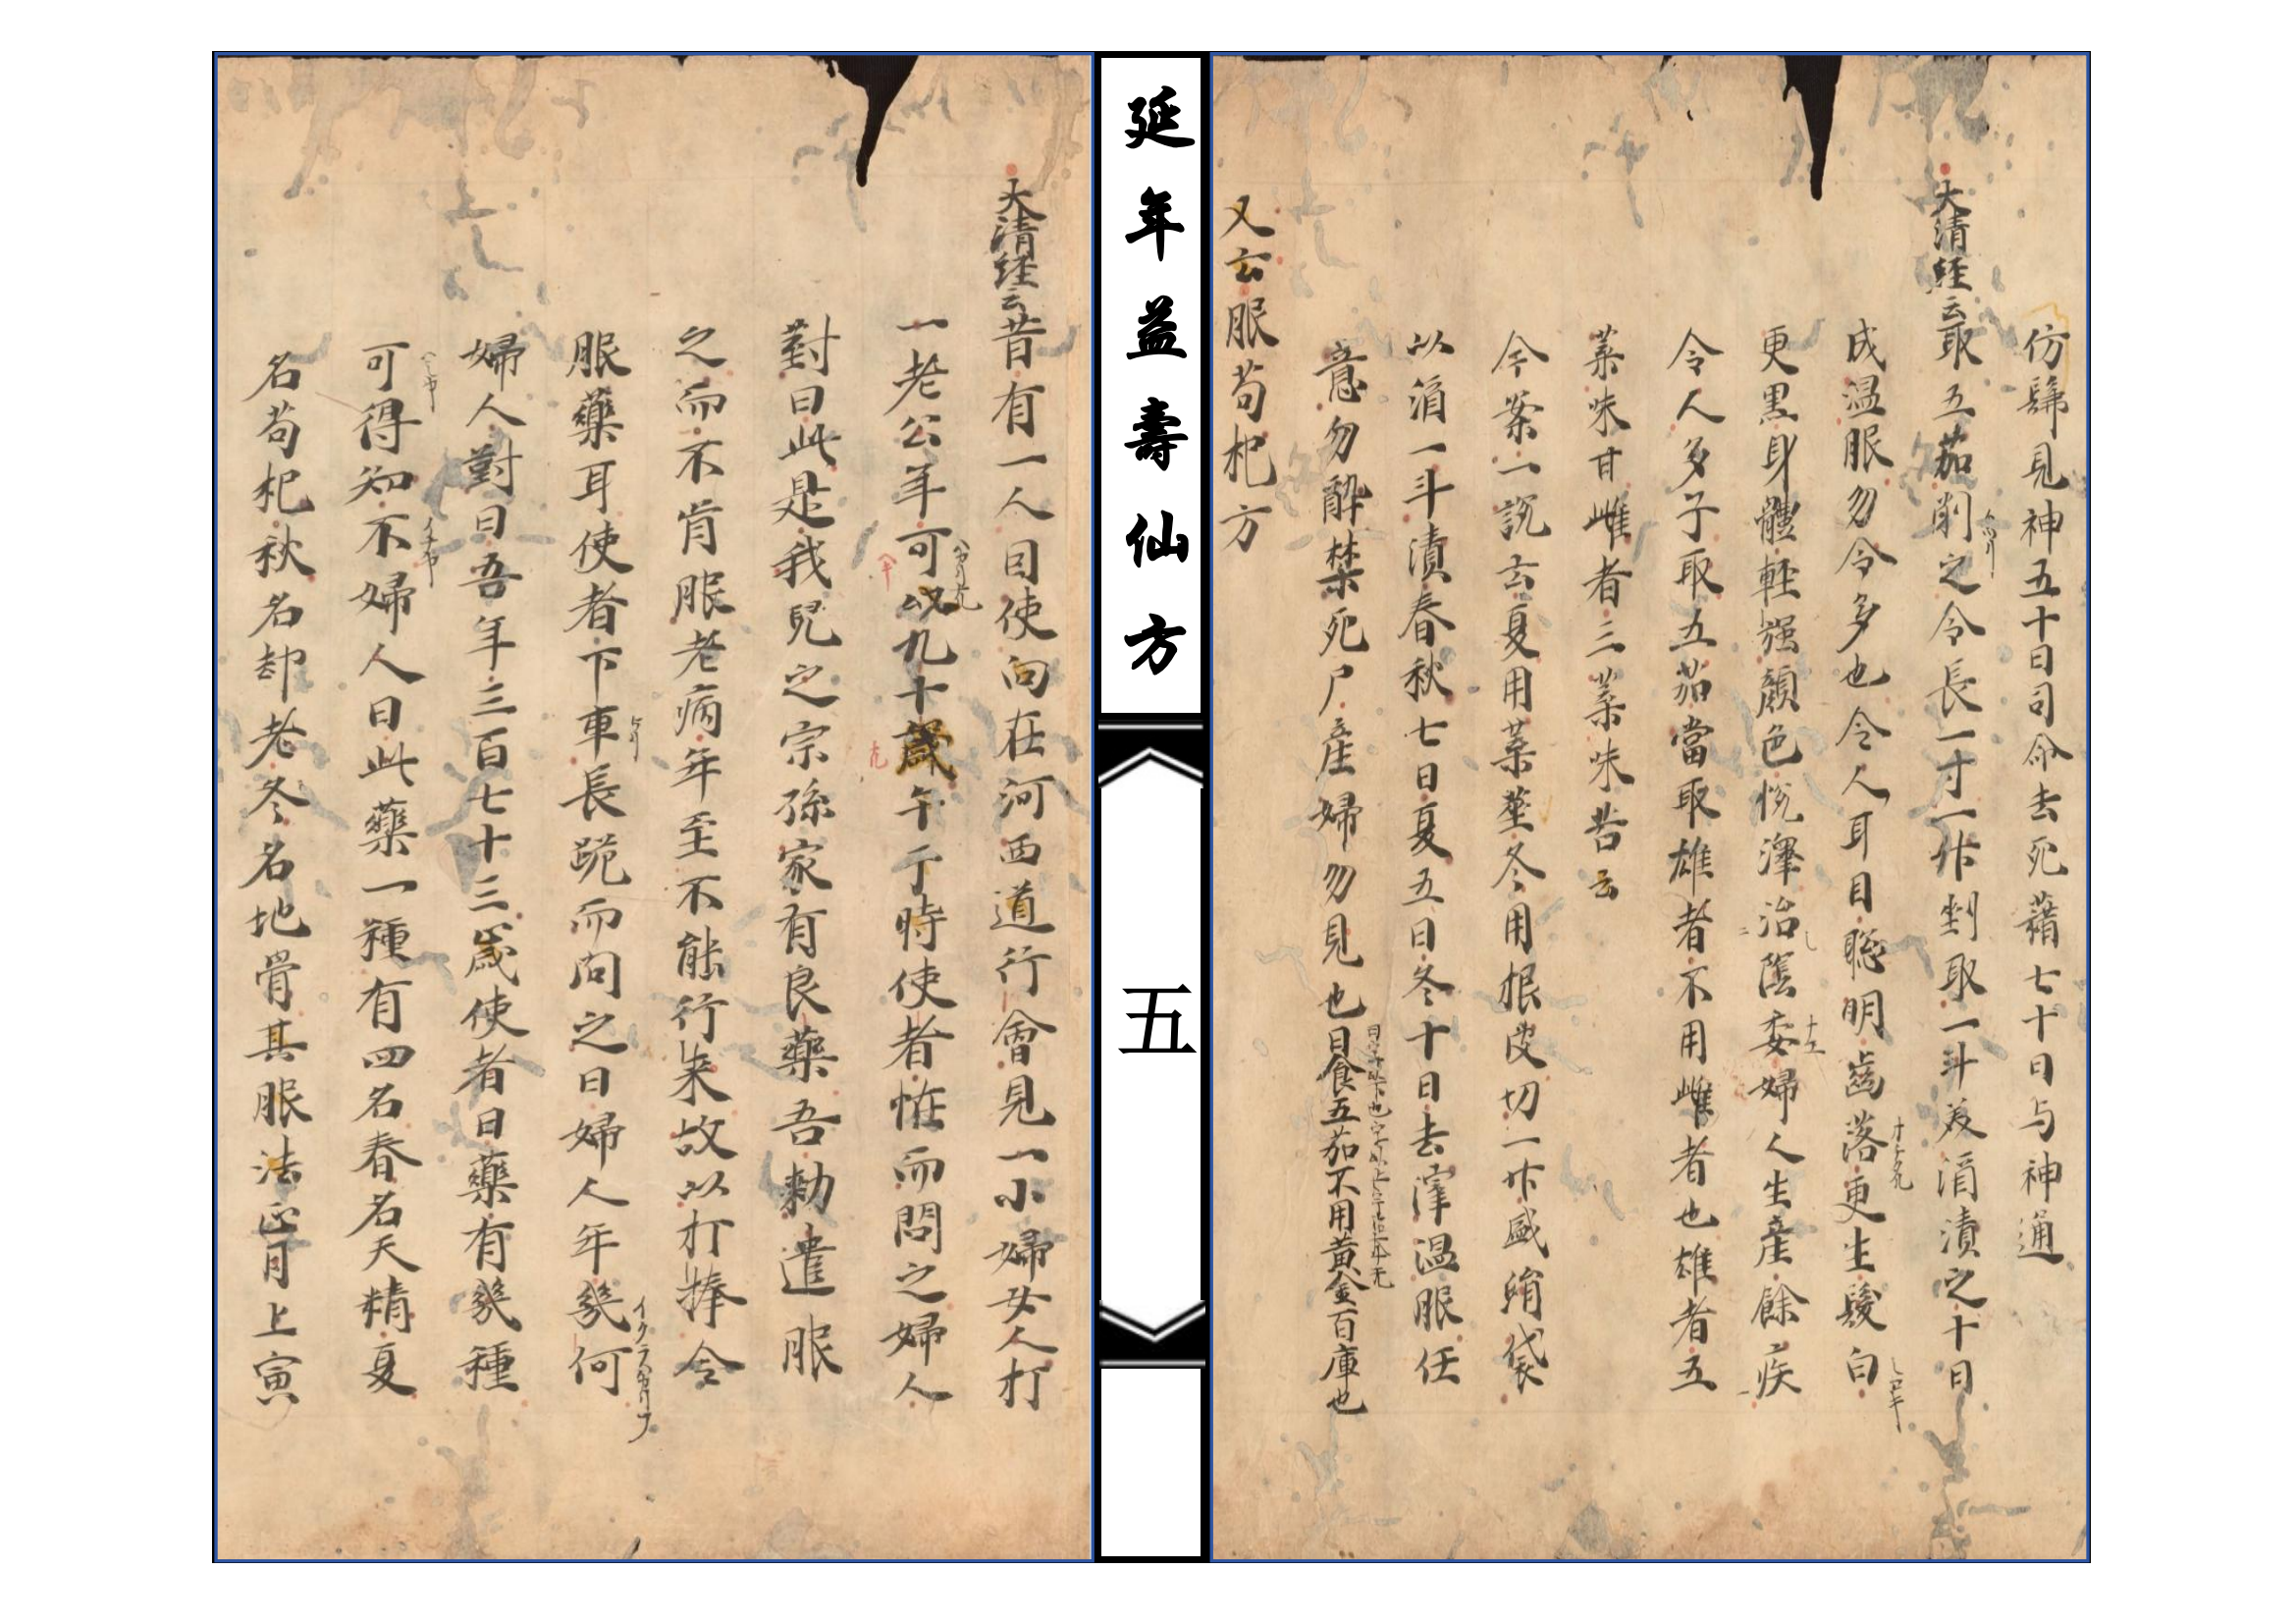 仿髴見神五十日司命去死藉七十日与神通
大清経云取五茄削之令長一寸一升剉取一斗美酒漬之十日
成温服勿令多也令人耳目聡明齒落更生髮白
更黒身體輕强顔色悦澤治陰委婦人生産餘疾
令人多子取五茄當取雄者不用雌者也雄者五
葉味甘雌者三葉味苦云
今案一説云夏用葉莖冬用根皮切一升盛絹袋
以酒一斗漬春秋七日夏五日冬十日去滓温服任
意勿醉禁死尸産婦勿見也日食五茄不用黄金百庫也
又云服苟杞方
延年益壽仙方
五
大清経云昔有一人目使向在河西道行會見一小婦女人打
一老公年可以九十歳午于時使者恠而問之婦人
對曰此是我兒之宗孫家有良藥吾勅遣服
之而不肯服老病年至不能行来故以打捧令
服藥耳使者下車長跪而问之曰婦人年㡬何
婦人對曰吾年三百七十三歳使者曰藥有㡬種
可得知不婦人曰此藥一種有四名春名天精夏
名苟杞秋名却老冬名地骨其服法正月上寅